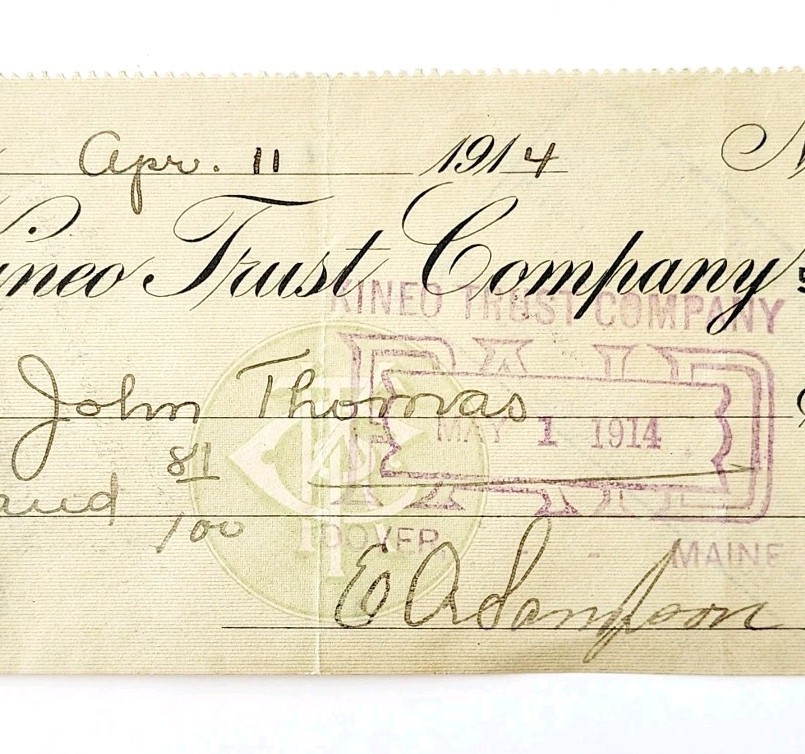 Apr. 11 1914 N
Kineo Trust Company
KINEO TRUST COMPANY
John Thomas
PAID
MAY 1 1914
and 81/100
DOVER MAINE
E A Sampson